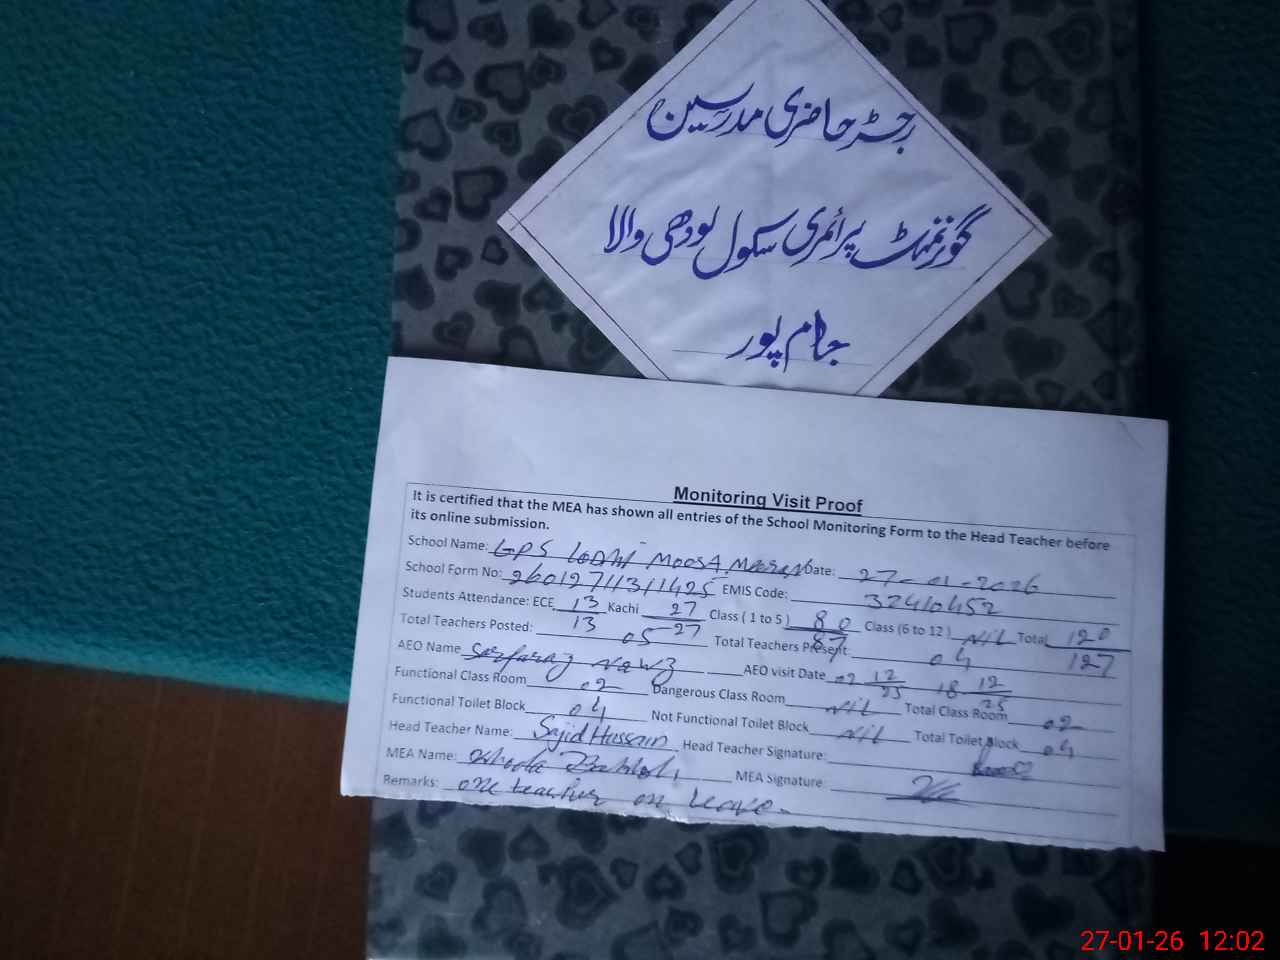 رجسٹر حاضری مدرسین
گورنمنٹ پرائمری سکول لودھی والا
جام پور
Monitoring Visit Proof
It is certified that the MEA has shown all entries of the School Monitoring Form to the Head Teacher before
its online submission.
School Name: GPS LODHI MOOSA Date: 27-01-2026
School Form No: EMIS Code: 32410452
Students Attendance: ECE 13/13 Kachi 27/27 Class ( 1 to 5 ) 80/87 Class (6 to 12 ) Nil Total 120/127
Total Teachers Posted: 05 Total Teachers Present: 04
AEO Name Sarfaraz Nawaz AEO visit Date 02 12/25 18 12/25
Functional Class Room 02 Dangerous Class Room Nil Total Class Room 02
Functional Toilet Block 04 Not Functional Toilet Block Nil Total Toilet Block 04
Head Teacher Name: Sajid Hussain Head Teacher Signature:
MEA Name: MEA Signature:
Remarks: one teacher on leave.
27-01-26 12:02